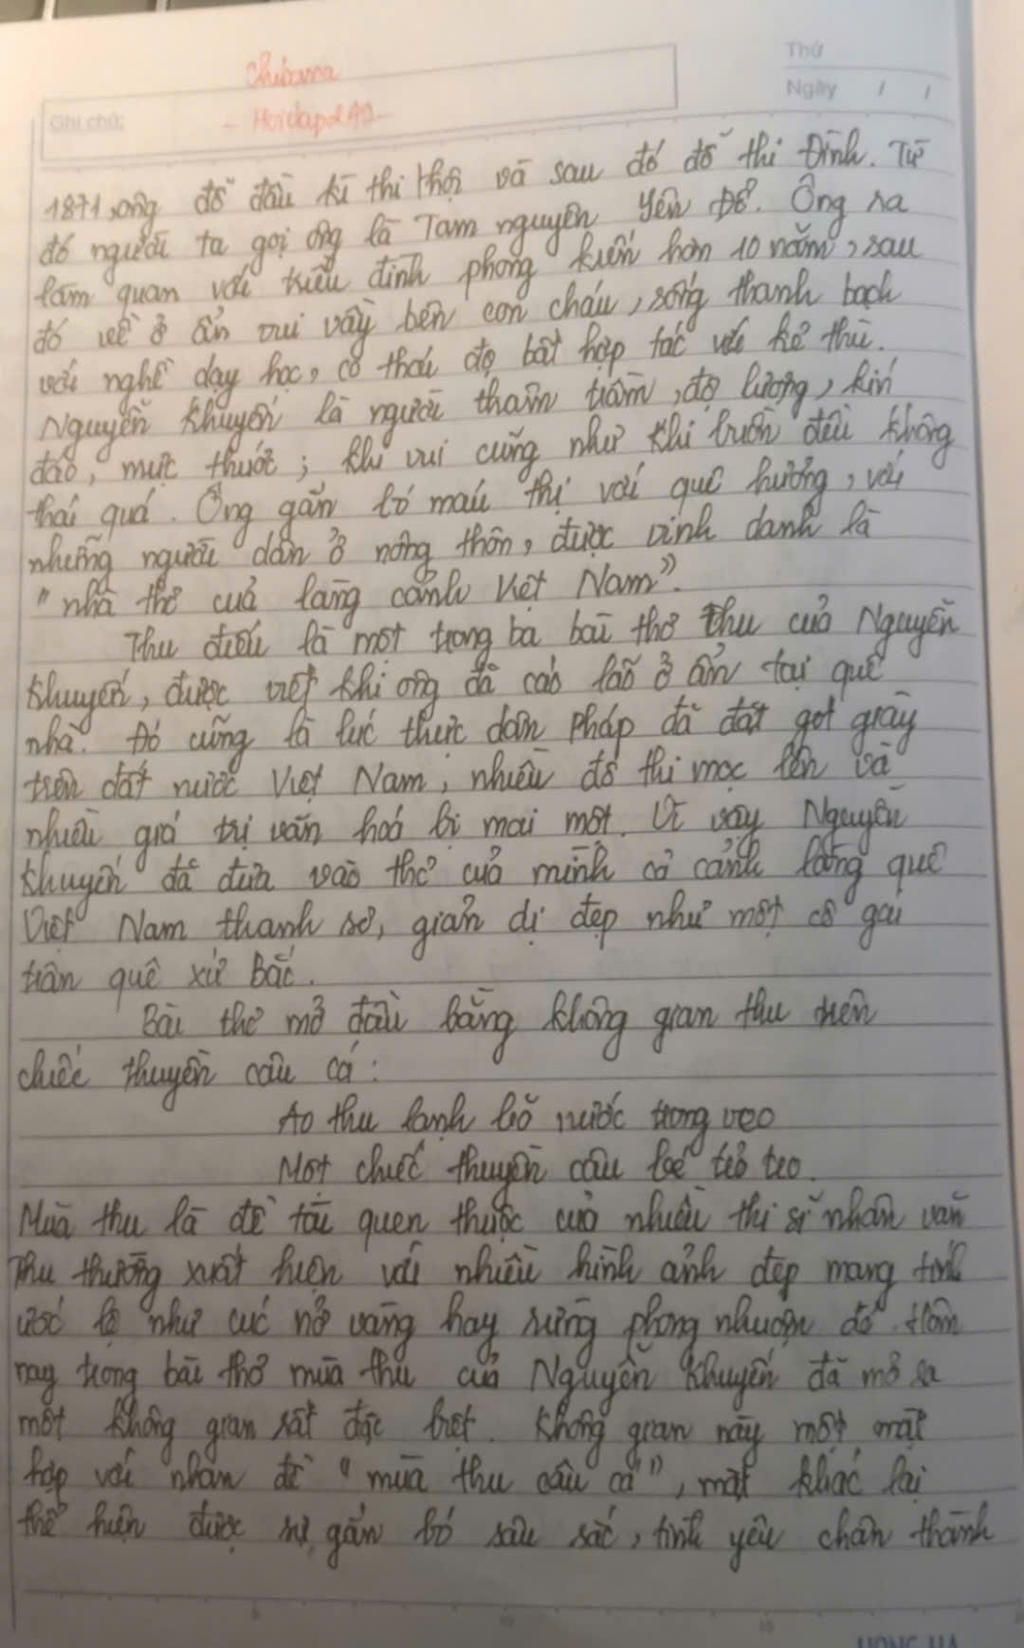 Thứ
Ngày / /
Ghi chú:
1871, ông đỗ đầu kì thi Hội và sau đó đỗ thi Đình. Từ
đó người ta gọi ông là Tam nguyên Yên Đổ. Ông ra
làm quan với triều đình phong kiến hơn 10 năm, sau
đó về ở ẩn vui vầy bên con cháu, sống thanh bạch
với nghề dạy học, có thái độ bất hợp tác với kẻ thù.
Nguyễn Khuyến là người thâm trầm, độ lượng, kín
đáo, mực thước; khi vui cũng như khi buồn đều không
thái quá. Ông gắn bó máu thị với quê hương, với
những người dân ở nông thôn, được vinh danh là
"nhà thơ của làng cảnh Việt Nam".
Thu điếu là một trong ba bài thơ thu của Nguyễn
Khuyến, được viết khi ông đã cáo lão ở ẩn tại quê
nhà. Đó cũng là lúc thực dân Pháp đã đặt gót giày
trên đất nước Việt Nam, nhiều đô thị mọc lên và
nhiều giá trị văn hoá bị mai một. Vì vậy Nguyễn
Khuyến đã đưa vào thơ của mình cả cảnh làng quê
Việt Nam thanh sơ, giản dị đẹp như một cô gái
trân quê xứ Bắc.
Bài thơ mở đầu bằng không gian thu trên
chiếc thuyền câu cá:
Ao thu lạnh lẽo nước trong veo
Một chiếc thuyền câu bé tẻo teo.
Mùa thu là đề tài quen thuộc của nhiều thi sĩ nhân văn
Thu thường xuất hiện với nhiều hình ảnh đẹp mang tính
ước lệ như cúc nở vàng hay rừng phong nhuộm đỏ. Hôm
nay trong bài thơ mùa thu của Nguyễn Khuyến đã mở ra
một không gian rất đặc biệt. Không gian này một mặt
hợp với nhan đề "mùa thu câu cá", mặt khác lại
thể hiện được sự gắn bó sâu sắc, tình yêu chân thành